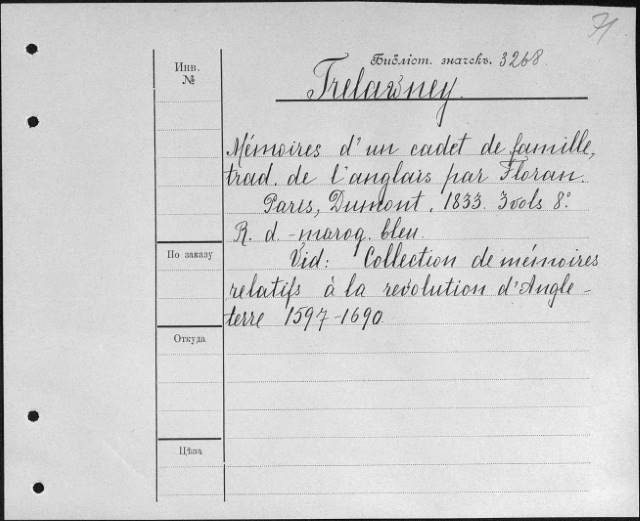 71
Инв. №
Библіот. значекъ. 3268
Trelawney.
Mémoires d'un cadet de famille,
trad. de l'anglais par Floran.
Paris, Dumont. 1833. 3 vols 8º.
R. d. - maroq. bleu.
По заказу
Vid: Collection de mémoires
relatifs à la revolution d'Angle-
terre 1597-1690
Откуда
Цѣна